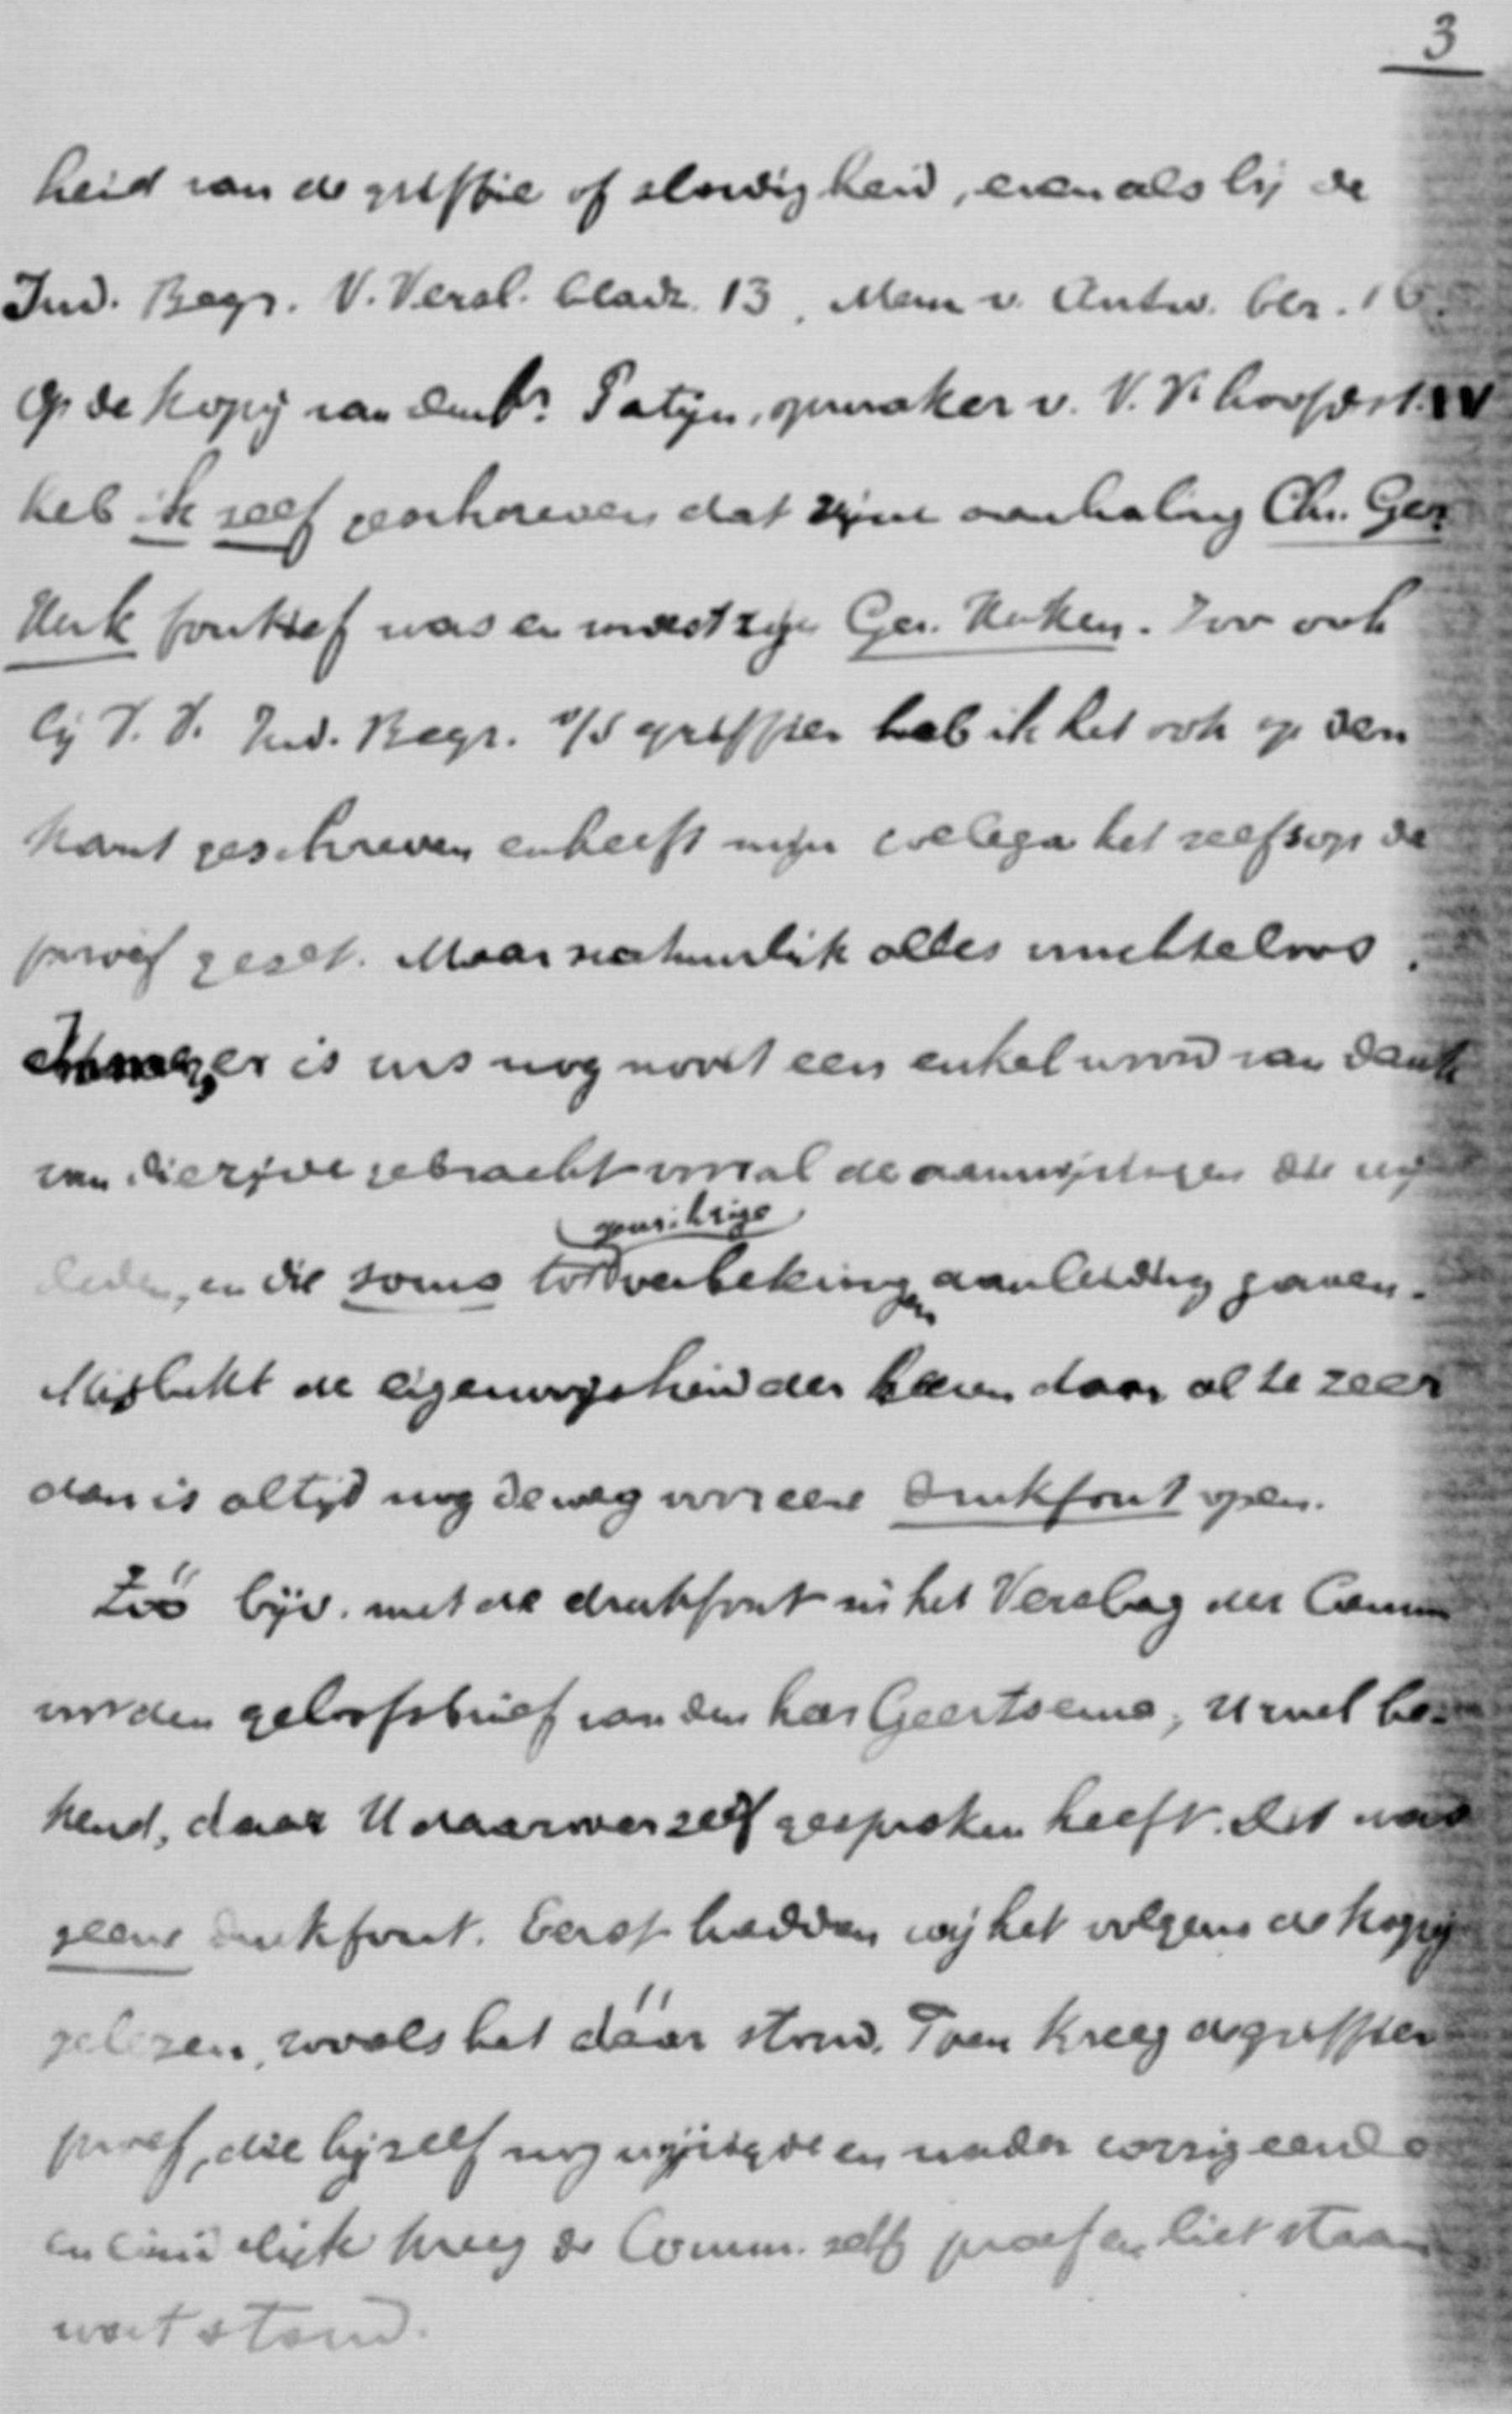 3
heid van de griffie of slordigheid, evenals bij de
Ind. Begr. V. Versl. bladz. 13, Mem v. Antw. blz. 16.
Op de kopij van den hr. Patijn, opmaker v. V. V. hoofdst. IV
heb ik zelf geschreven dat zijne aanhaling Chr. Ger.
Kerk foutief was en moest zijn Ger. Kerken. Zoo ook
bij V. V. Ind. Begr. v/d griffier heb ik het ook op den
kant geschreven en heeft mijn collega het zelfs op de
proef gezet. Maar natuurlijk alles vruchteloos.
er is ons nog nooit een enkel woord van dank
van die zijde gebracht voor al de aanwijzingen die wij
deden, en die soms tot verbeteringen aanleiding gaven.
Mislukt de eigenwijsheid der heeren daar al te zeer
dan is altijd nog de weg voor eene drukfout open.
Zóó bijv. met de drukfout in het Verslag der Comm
voor den geloofsbrief van den heer Geertsema, U wel be-
kend, daar U daarover zelf gesproken heeft. Dit was
geene drukfout. Eerst hadden wij het volgens de kopij
gelezen, zooals het dáár stond. Toen kreeg de griffier
proef, die hij zelf nog wijzigde en nader corrigeerde
en eindelijk kreeg de Comm. zelf proef en liet staan
wat stond.